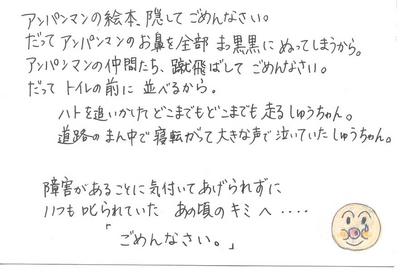 アンパンマンの絵本、隠して ごめんなさい。
だって アンパンマンのお鼻を全部 まっ黒黒に ぬってしまうから。
アンパンマンの仲間たち、蹴飛ばして ごめんなさい。
だって トイレの前に 並べるから。
ハトを追いかけて どこまでもどこまでも 走る しゅうちゃん。
道路のまん中で 寝転がって 大きな声で 泣いていた しゅうちゃん。
障害があることに 気付いてあげられずに
いつも 叱られていた あの頃のキミへ・・・・
「ごめんなさい。」